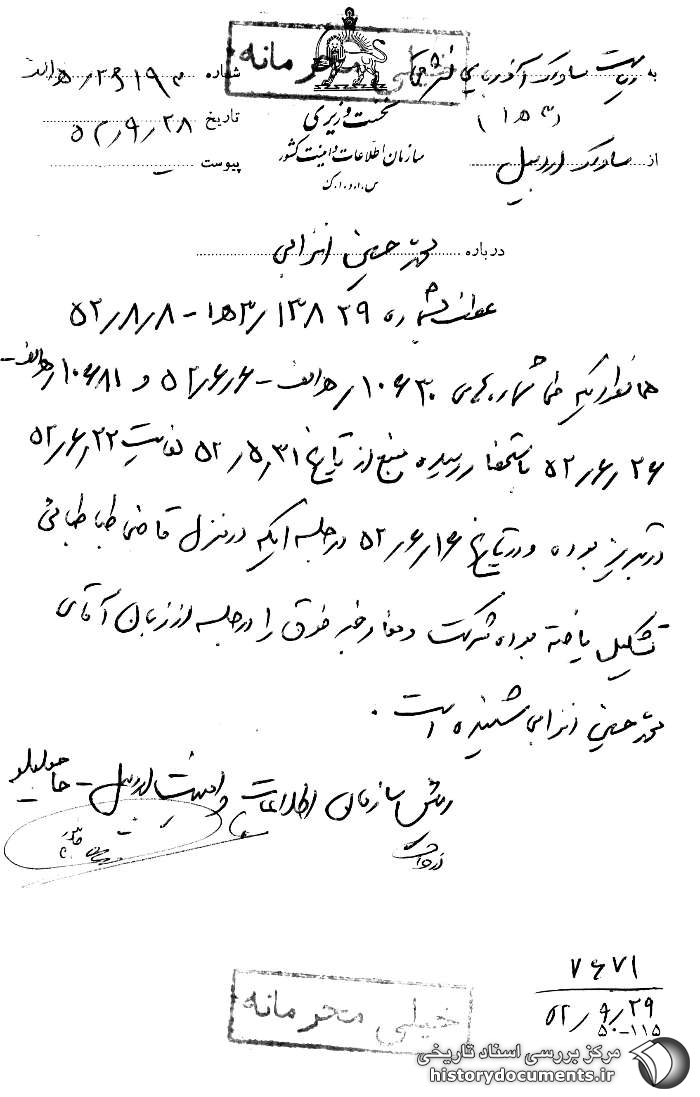 خیلی محرمانه
به ریاست ساواک آذربایجان شرقی
(۳ ه‍ ۱)
از ساواک اردبیل
نخست وزیری
سازمان اطلاعات و امنیت کشور
س.ا.و.ا.ک
شماره
تاریخ ۵۲/۹/۲۸
پیوست
درباره محمد حسین انزابی
عطف بشماره ۱۳۸۲۹/ ۳ه‍ ۱ - ۵۲/۸/۸
همانطوریکه طی شماره‌های ۱۰۶۳۰/ ه‍ الف - ۵۲/۶/۶ و ۱۰۶۸۱/ ه‍ الف -
۵۲/۶/۲۶ باستحضار رسیده منبع از تاریخ ۵۲/۵/۳۱ لغایت ۵۲/۶/۲۲
در تبریز بوده و در تاریخ ۵۲/۶/۱۶ در جلسه ایکه در منزل قاضی طباطبائی
تشکیل یافته بوده شرکت و مفاد خبر فوق را در جلسه از زبان آقای
محمد حسین انزابی شنیده است.
رئیس سازمان اطلاعات و امنیت اردبیل -
۷۶۷۱
۵۲/۹/۲۹
۵۰-۱۱۵
خیلی محرمانه
مرکز بررسی اسناد تاریخی
historydocuments.ir